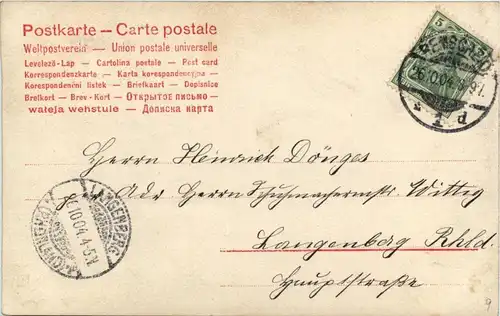 Postkarte — Carte postale
Weltpostverein — Union postale universelle
Levelező-Lap — Cartolina postale — Post card
Korrespondenzkarte — Karta korespondencyjna —
Korespondenční lístek — Briefkaart — Dopisnice
Brefkort — Brev-Kort — Открытое письмо —
wateja wehstule — Дописна карта
5
26.10.04
1 d
Herrn Heinrich Dönges
per Adr Herrn Schuhmachermstr. Wittig
Langenberg Rhld.
Hauptstraße
LANGENBERG
(RHEINLAND)
10.04.4-5N
9